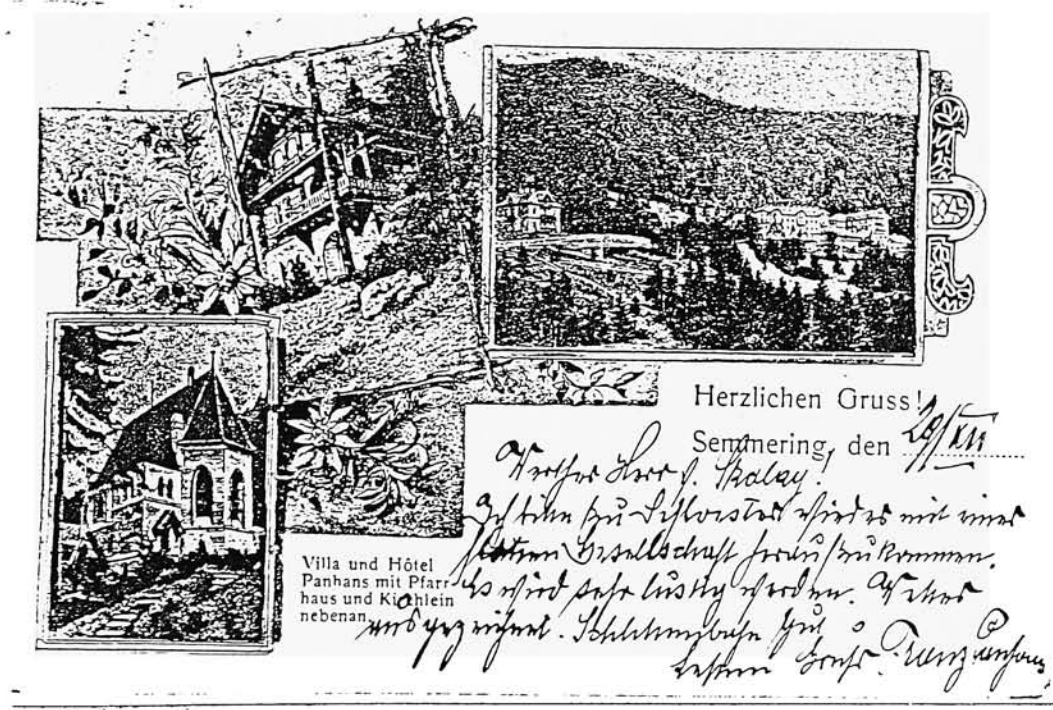 Herzlichen Gruss!
Semmering, den 29/XII
Werther Herr v. Skalay!
Ich bitte zu Sylvester wieder mit einer
Gesellschaft herauf zu kommen.
Es wird sehr lustig werden. Wetter
ausgezeichnet. Schlittenbahn gut
Besten Gruß Franz Panhans
Villa und Hôtel
Panhans mit Pfarr-
haus und Kirchlein
nebenan.